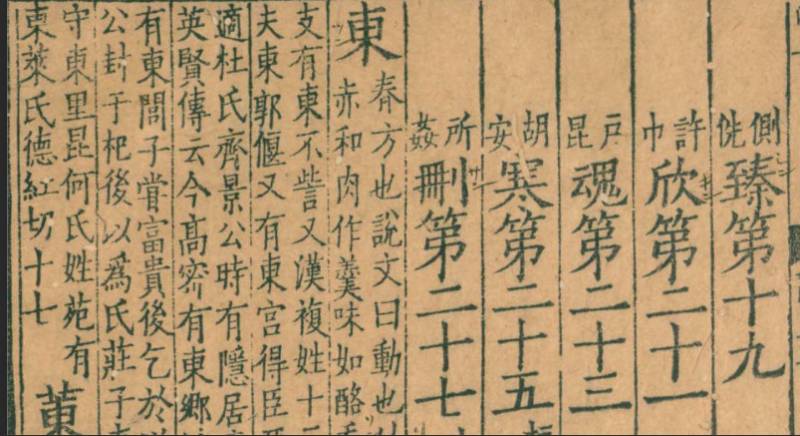 側侁臻第十九
許巾欣第二十一
戸昆魂第二十三
胡安寒第二十五
所姦刪第二十七
東春方也說文曰動也
赤和肉作羹味如酪
支有東不訾又漢複姓十
夫東郭偃又有東宮得臣
適杜氏齊景公時有隱居
英賢傳云今高密有東鄉
有東閭子甞富貴後乞於
公封于杞後以爲氏莊子
守東里昆何氏姓苑有
東萊氏德紅切十七
菄